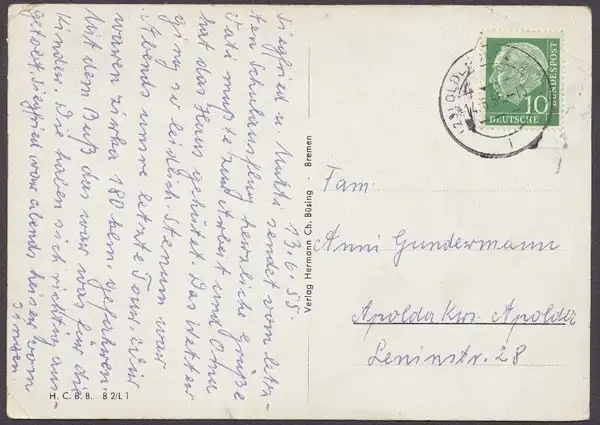 13.6.55
Siegfried u. Mutti sendet vom letz-
ten Schulausflug herzliche Grüße
Vati mußte zur Arbeit und Oma
hat das Haus gehütet. Das Wetter
ging so leidlich Stenum war
Abends unsre letzte Tour, wir
waren zirka 180 kem. gefahren.
Mit dem Buß das war was für die
Kinder. Die haben sich richtig aus-
getobt. Siegfried war abends heiser vom
Verlag Hermann Ch. Büsing · Bremen
H. C. B. B. B 2/L 1
DEUTSCHE
BUNDESPOST
10
Fam:
Anni Gundermann
Apolda Krs. Apolda
Leninstr. 28